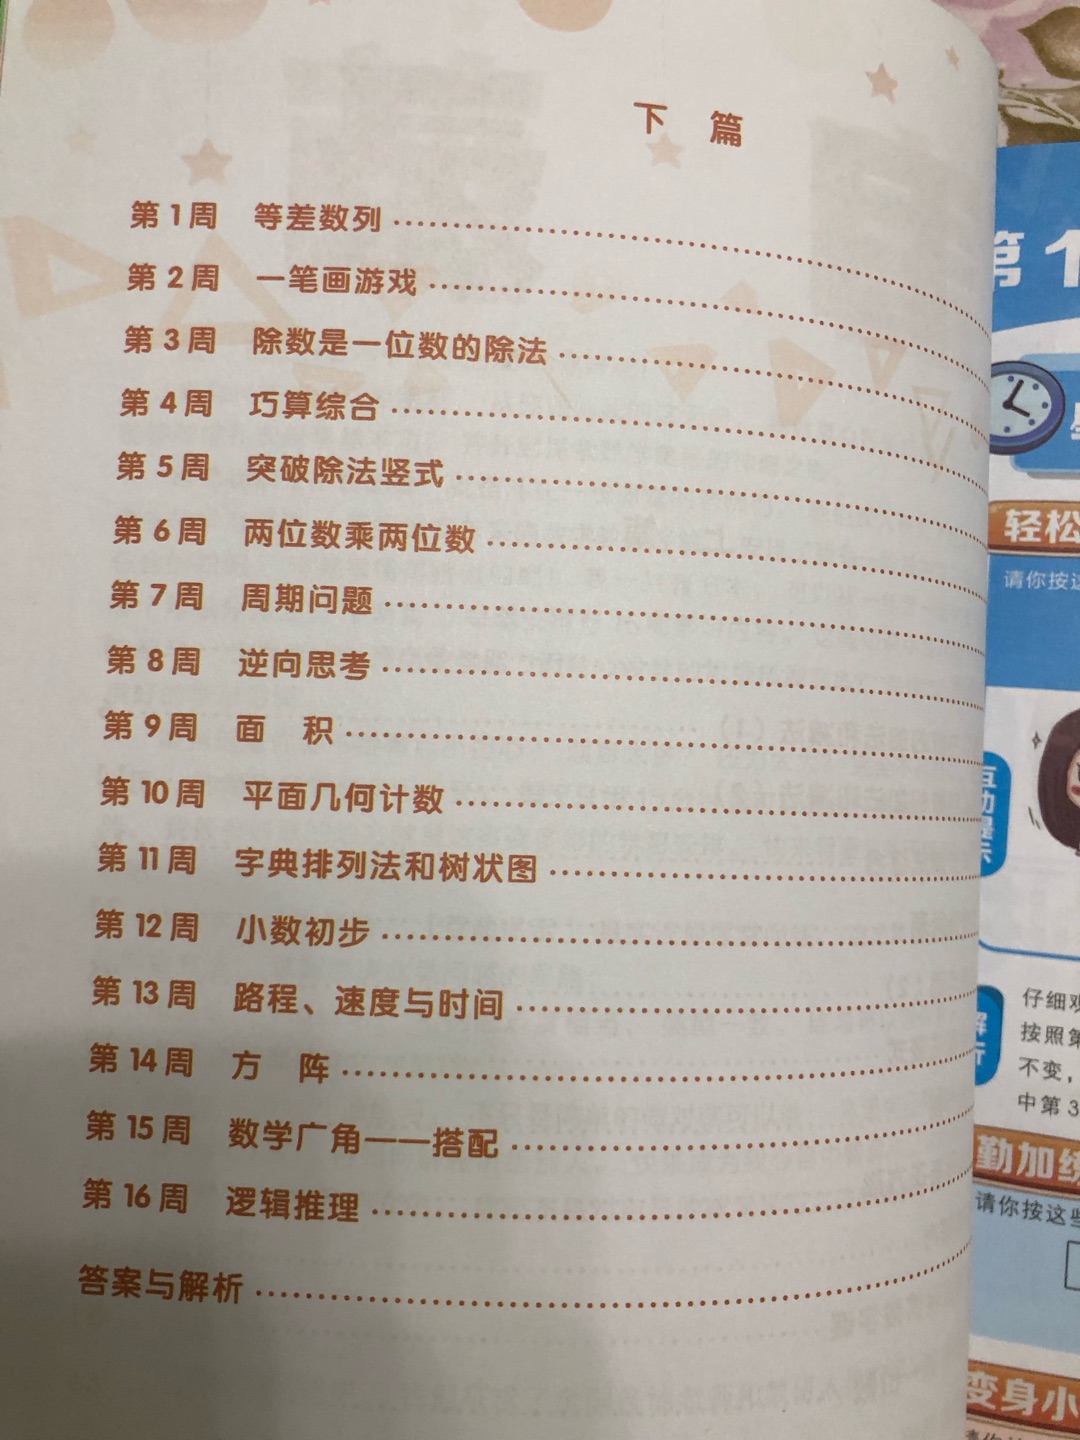 下 篇
第1周 等差数列
第2周 一笔画游戏
第3周 除数是一位数的除法
第4周 巧算综合
第5周 突破除法竖式
第6周 两位数乘两位数
第7周 周期问题
第8周 逆向思考
第9周 面 积
第10周 平面几何计数
第11周 字典排列法和树状图
第12周 小数初步
第13周 路程、速度与时间
第14周 方 阵
第15周 数学广角——搭配
第16周 逻辑推理
答案与解析
第1
轻松
请你按这
互动提示
仔细观
按照第
不变，
中第3
勤加练
请你按这些
变身小